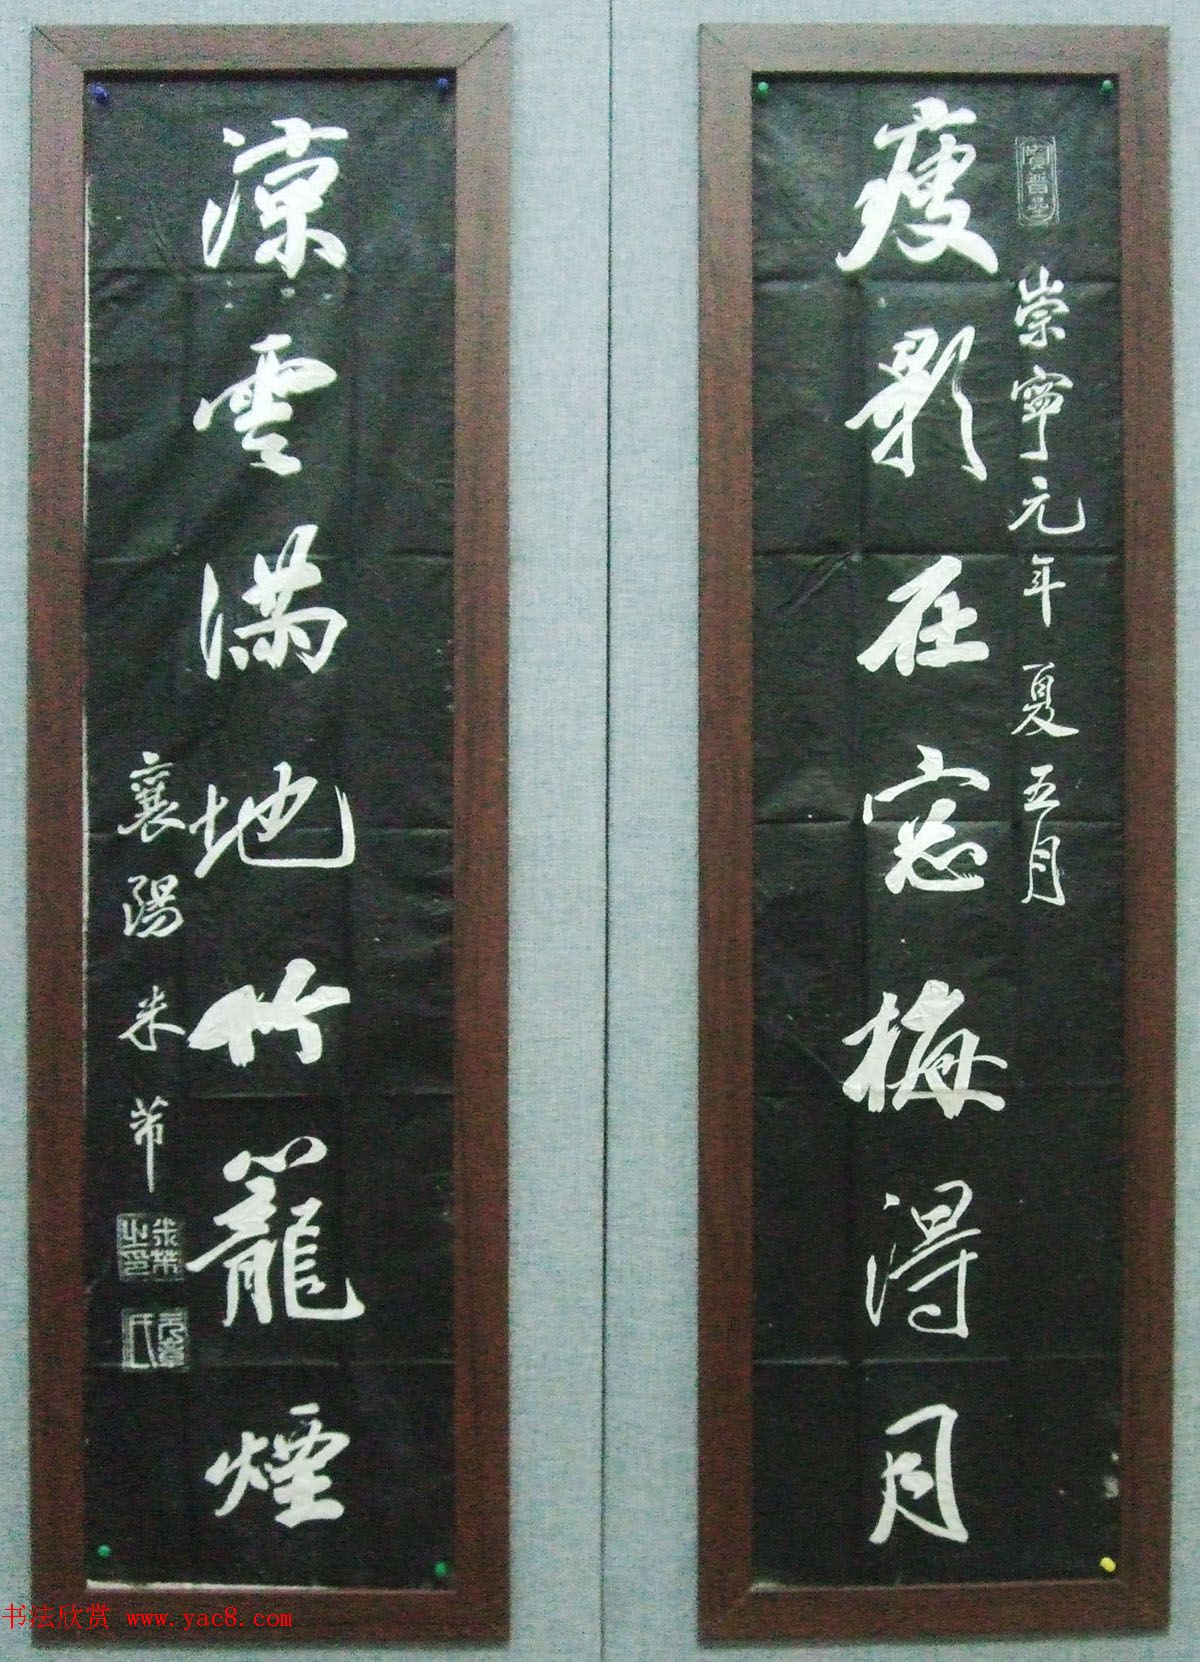 崇寧元年夏五月
瘦影在窓梅得月
涼雲滿地竹籠煙
襄陽米芾
书法欣赏 www.yac8.com